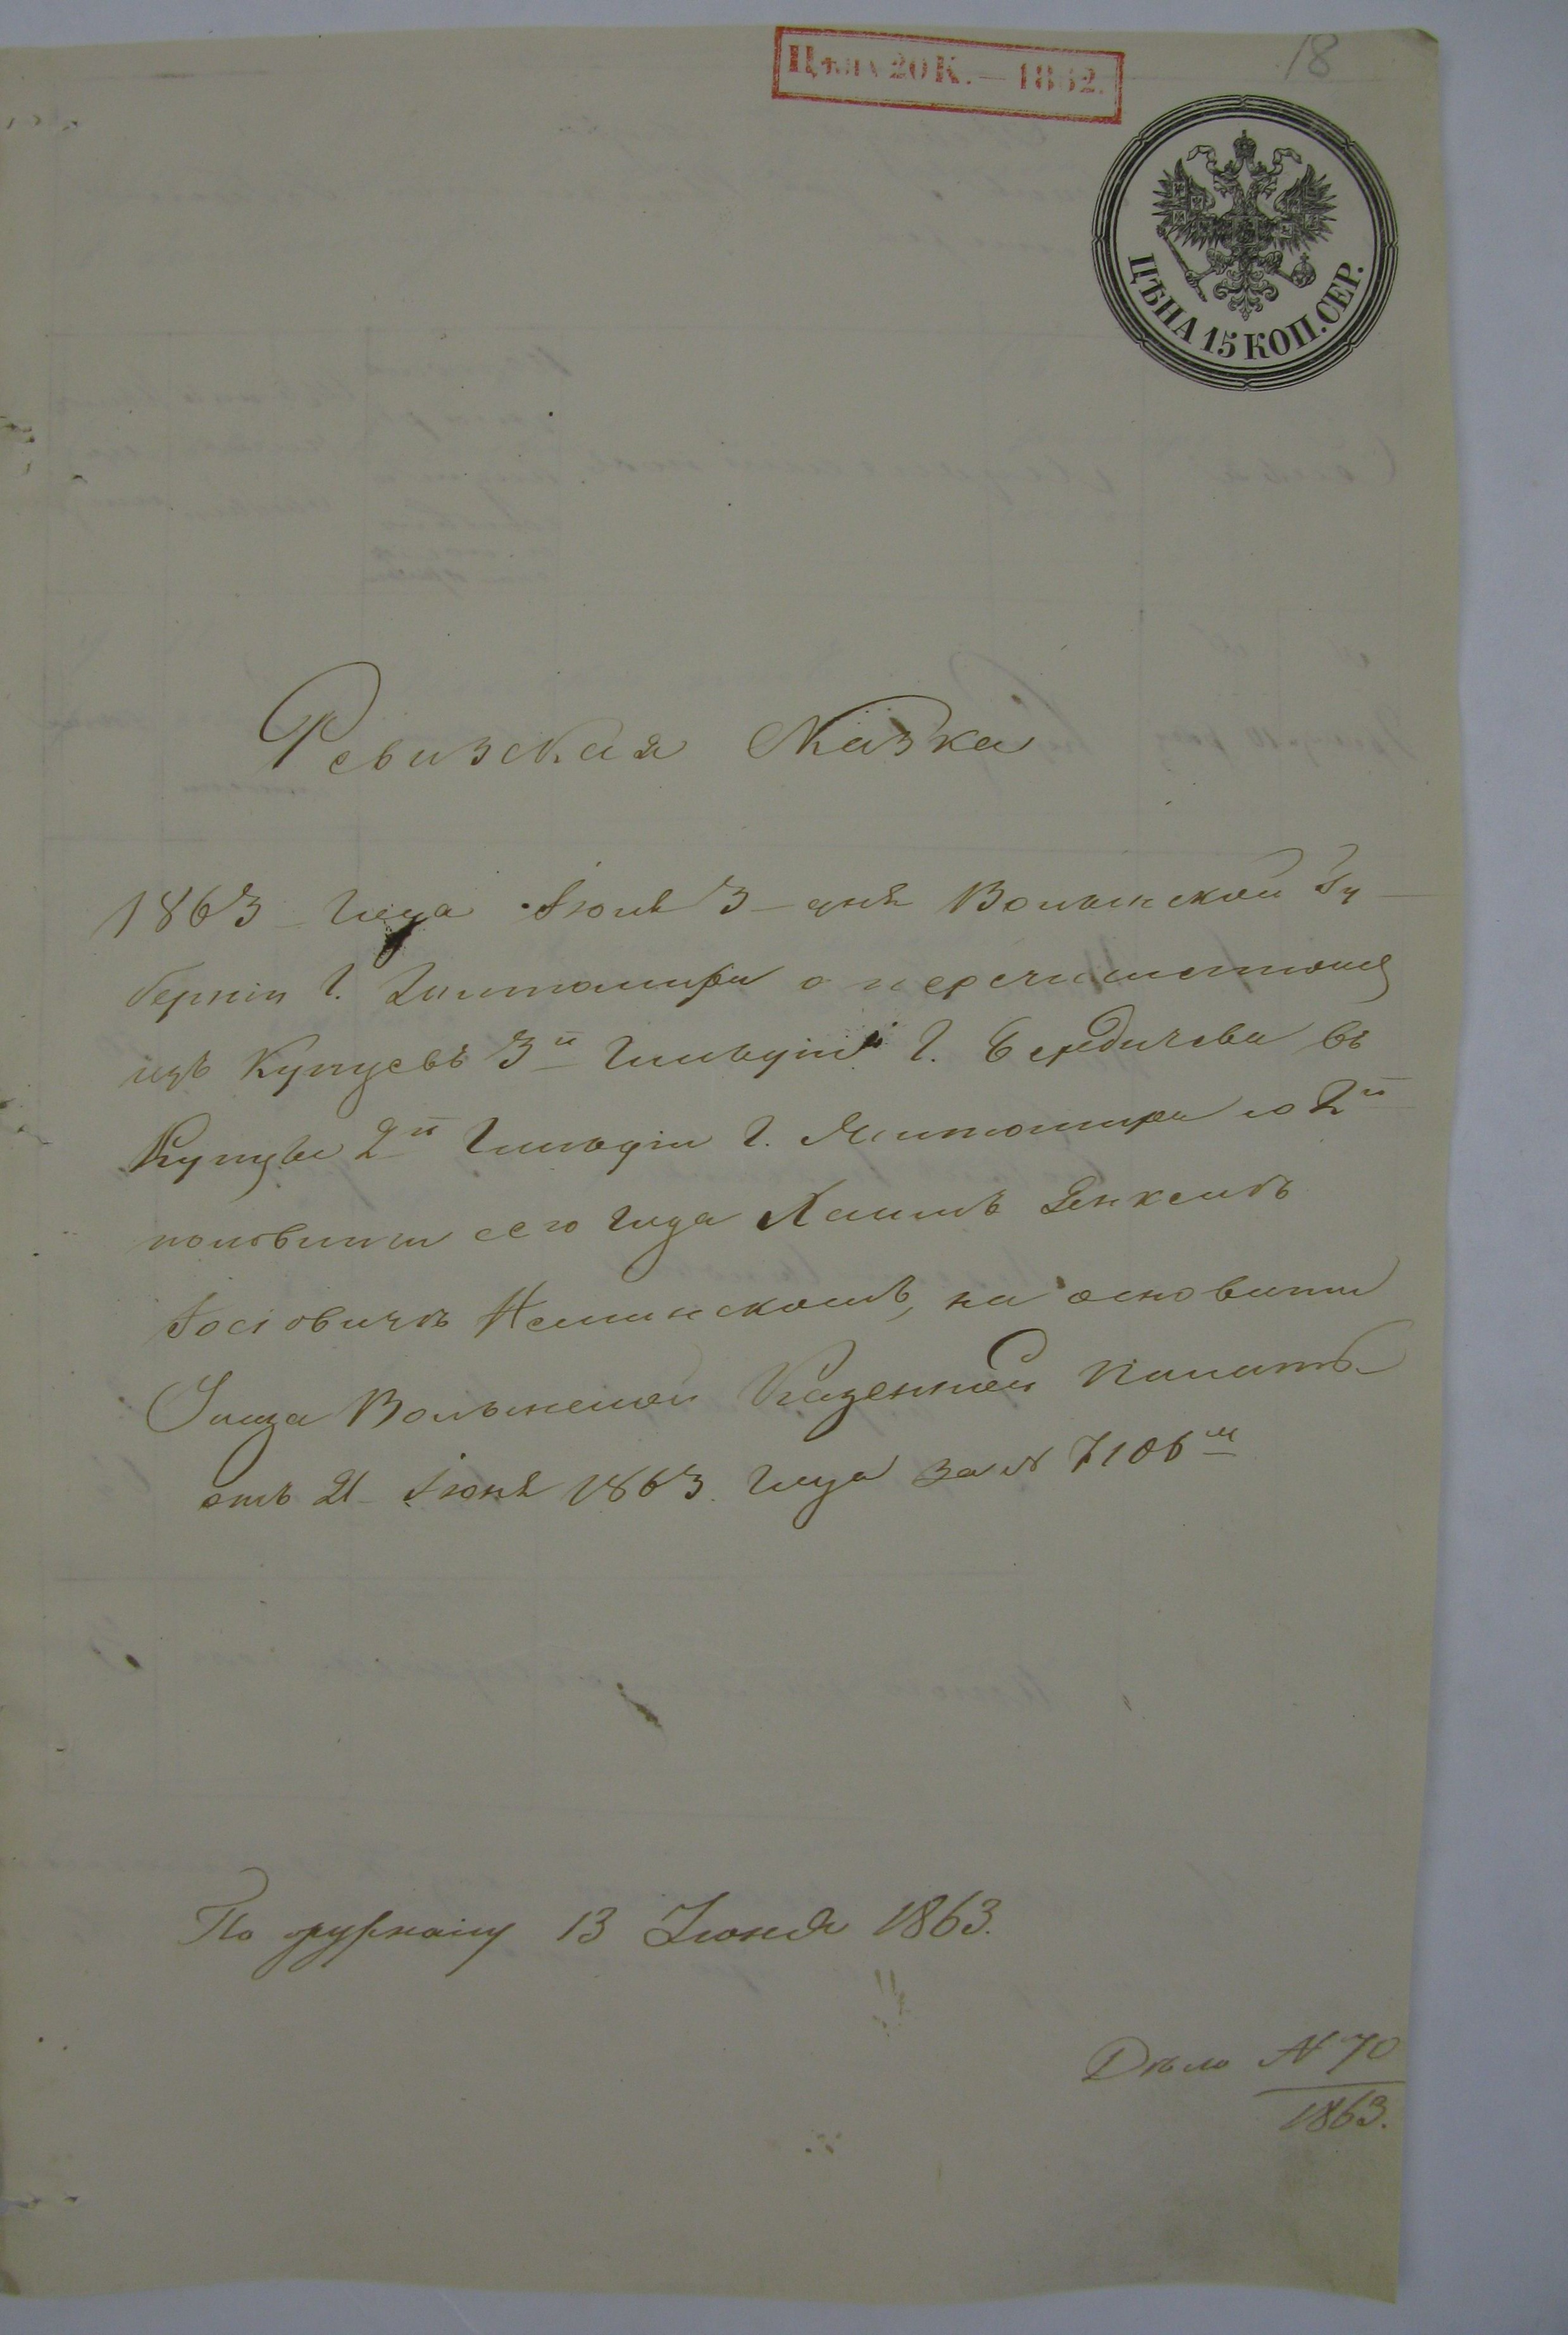 18
Цѣна 20 К. — 1862.
ЦѢНА 15 КОП. СЕР.
Ревизская Сказка
1863 – Года Іюля 3 – дня Волынской Гу-
берніи Г. Житомира о перечислившемся
изъ Купцевъ 3й Гильдіи Г. Бердичева въ
Купцы 2й Гильдіи Г. Житомира со 2й
половины сего Года Хаимъ
на основаніи
Указа Волынской Казенной Палаты
отъ 21 Іюня 1863 Года за № 7106м
По журналу 13 Іюня 1863.
Дѣло № 70
1863.